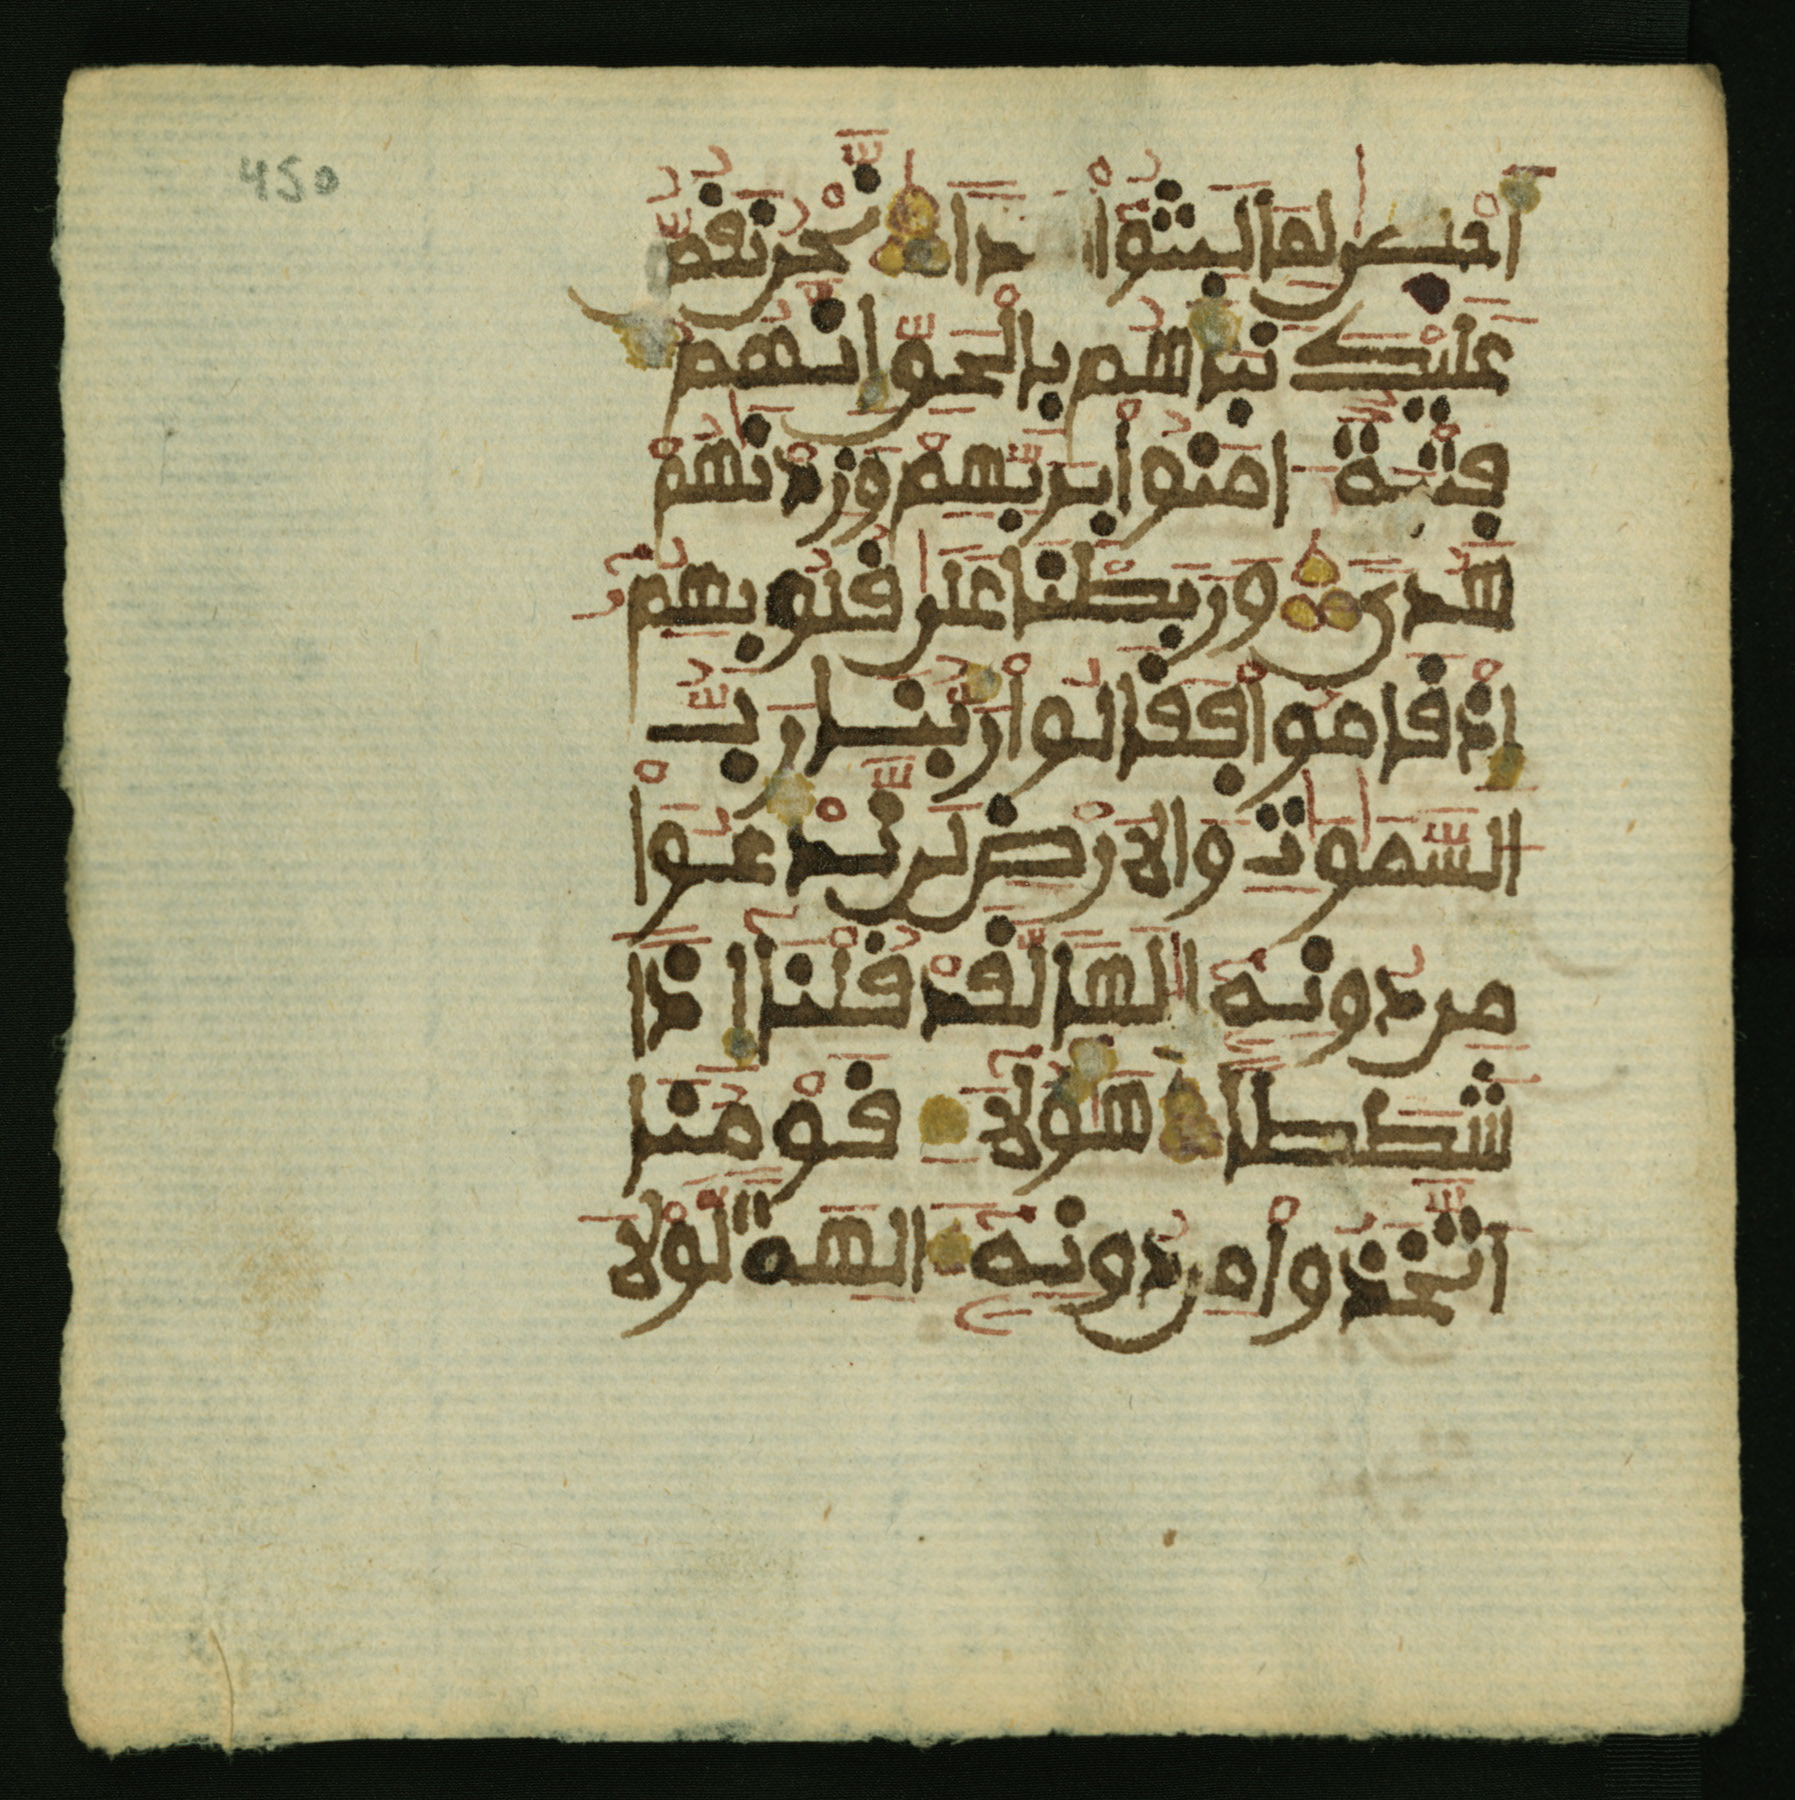 450
احصى لما لبثوا مدا نحن نقص
عليك نباهم بالحق انهم
فتية امنوا بربهم وزدنهم
هدى وربطنا على قلوبهم
اذ قاموا فقالوا ربنا رب
السموت والارض لن ندعوا
من دونه الها لقد قلنا اذا
شططا هولا قومنا
اتخذوا من دونه الهة لولا